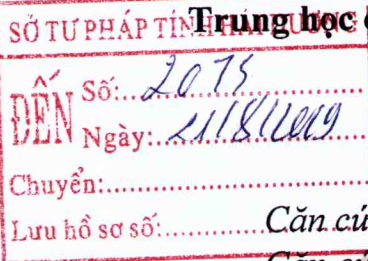 SỞ TƯ PHÁP TỈNH HẢI DƯƠNG
Trung học
ĐẾN
Số: 2075
Ngày: 21/8/2019
Chuyển:
Lưu hồ sơ số:
Căn cứ